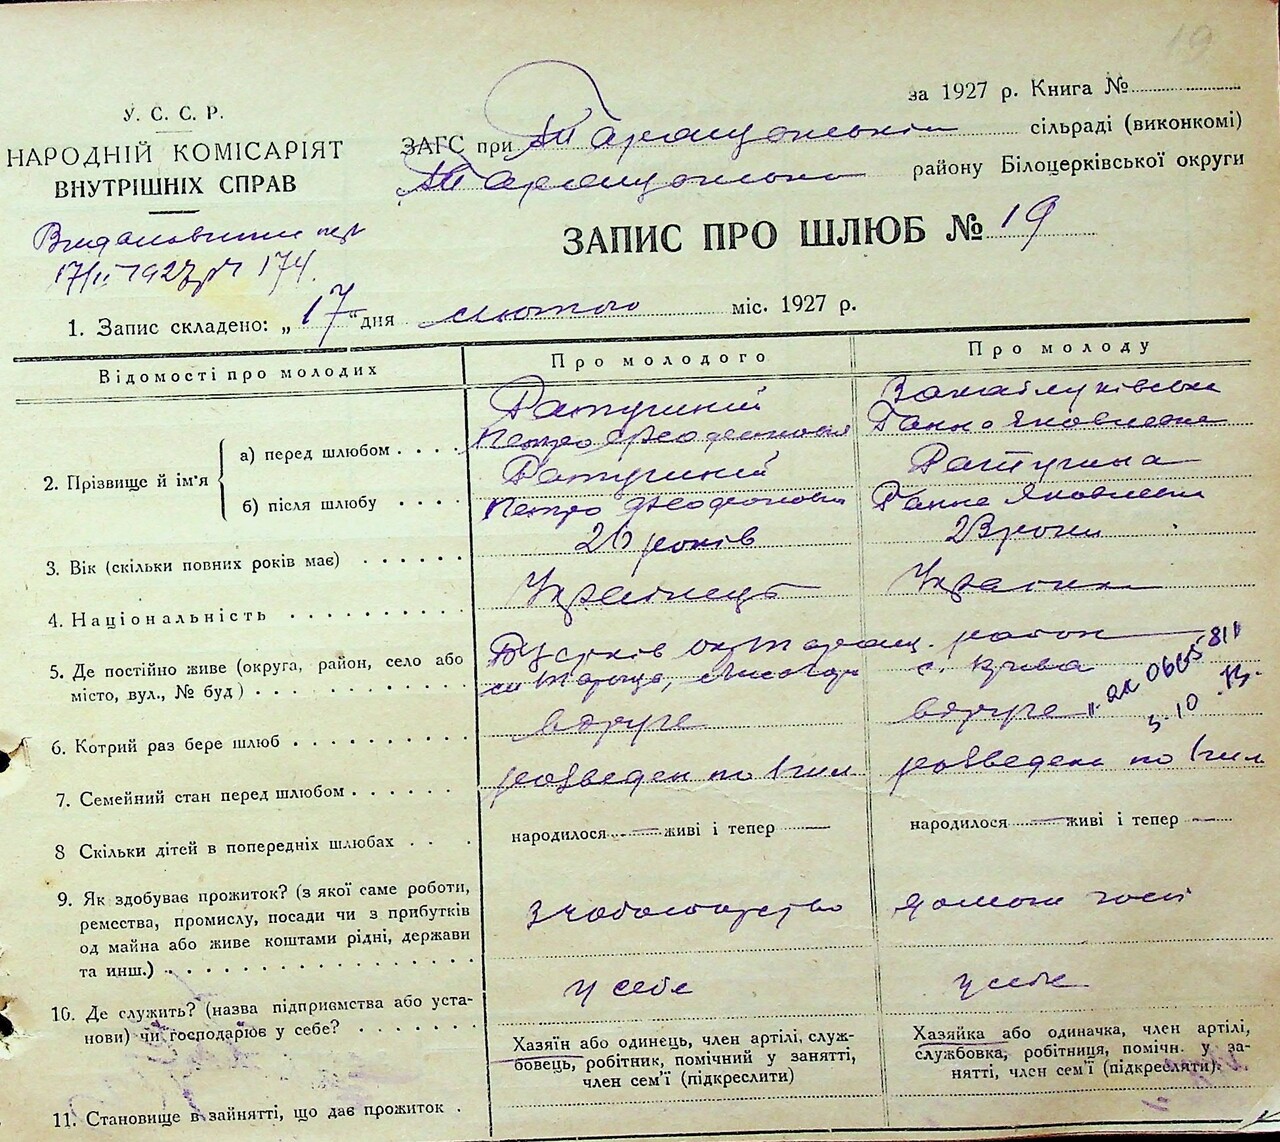 19
У. С. С. Р.
НАРОДНІЙ КОМІСАРІЯТ
ВНУТРІШНІХ СПРАВ
за 1927 р. Книга №
ЗАГС при Таращанськім сільраді (виконкомі)
Таращансько району Білоцерківської округи
17/II 1927 р. № 174.
ЗАПИС ПРО ШЛЮБ № 19
1. Запис складено: „17“ дня лютого міс. 1927 р.
Відомості про молодих
Про молодого
Про молоду
2. Прізвище й ім'я
а) перед шлюбом
Ратушний
Петро
Ганна Яковлевна
б) після шлюбу
Ратушний
Петро Феодосиович
Ратушна
Ганна Яковлевна
3. Вік (скільки повних років має)
26 років
23 роки
4. Національність
Українець
Українка
5. Де постійно живе (округа, район, село або
місто, вул., № буд)
Таращ. район
с. Крива
811
5. 10
6. Котрий раз бере шлюб
вдруге
вдруге
7. Семейний стан перед шлюбом
розведен по
розведена по
8 Скільки дітей в попередніх шлюбах
народилося — живі і тепер —
народилося — живі і тепер —
9. Як здобуває прожиток? (з якої саме роботи,
ремества, промислу, посади чи з прибутків
од майна або живе коштами рідні, держави
та инш.)
домаш госп
10. Де служить? (назва підприємства або уста-
нови) чи господарює у себе?
у себе
у себе
11. Становище в зайнятті, що дає прожиток
Хазяїн або одинець, член артілі, служ-
бовець, робітник, помічний у занятті,
член сем'ї (підкреслити)
Хазяйка або одиначка, член артілі,
службовка, робітниця, помічн. у за-
нятті, член сем'ї (підкреслити).